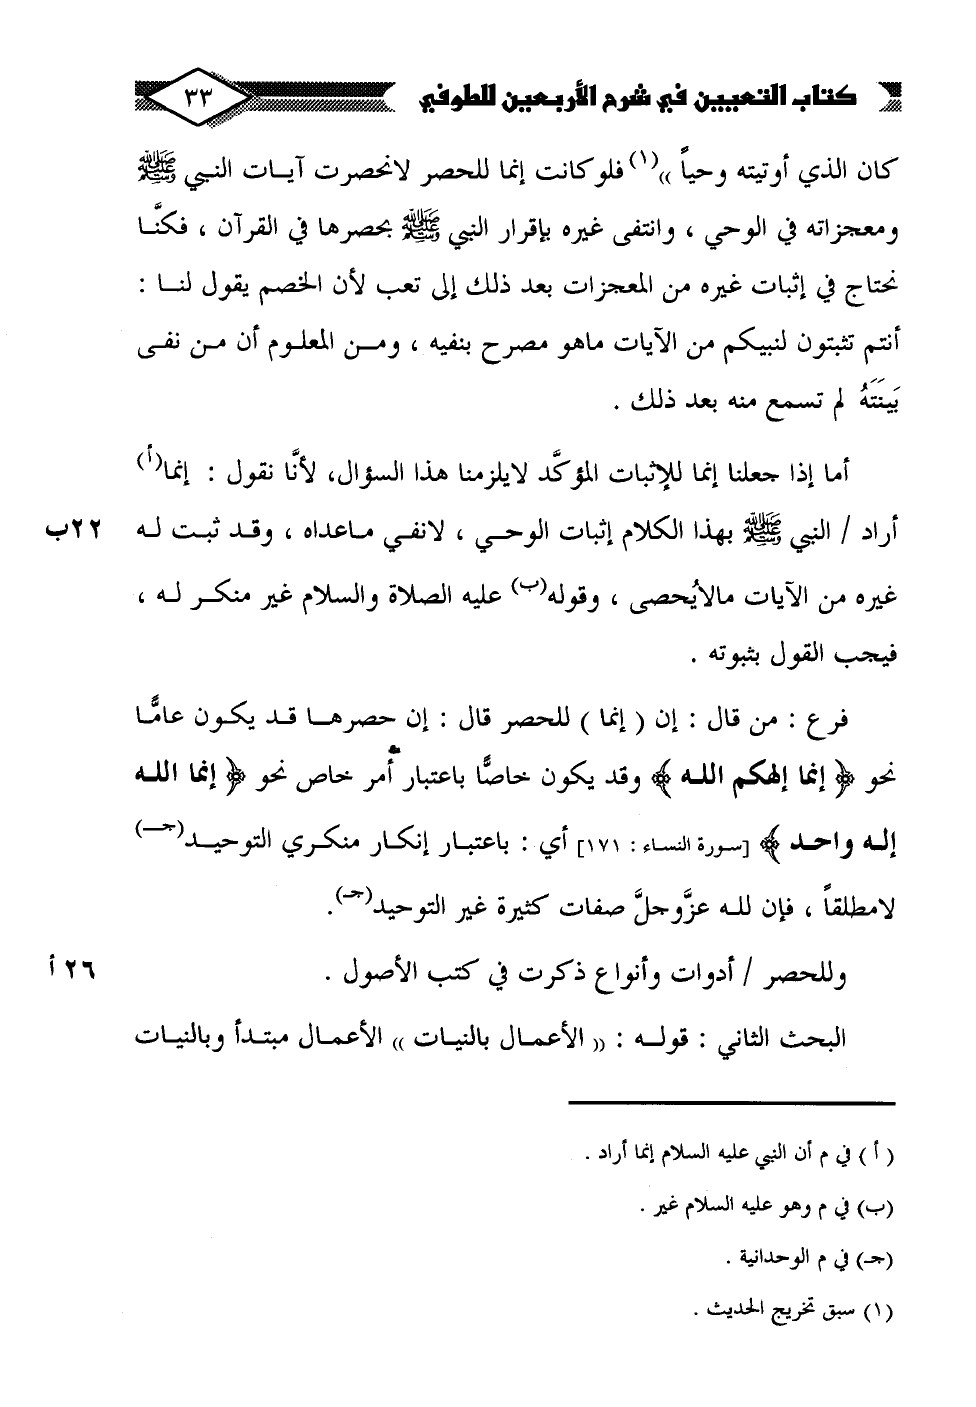 كتاب التعيين في شرح الأربعين للطوفي ٣٣
كان الذي أوتيته وحياً »(١) فلو كانت إنما للحصر لانحصرت آيات النبي ﷺ
ومعجزاته في الوحي ، وانتفى غيره بإقرار النبي ﷺ بحصرها في القرآن ، فكنَّا
نحتاج في إثبات غيره من المعجزات بعد ذلك إلى تعب لأن الخصم يقول لنا :
أنتم تثبتون لنبيكم من الآيات ماهو مصرح بنفيه ، ومن المعلوم أن من نفى
بَيَنَتَهُ لم تسمع منه بعد ذلك .
أما إذا جعلنا إنما للإثبات المؤكَّد لايلزمنا هذا السؤال، لأنَّا نقول : إنما(أ)
أراد / النبي ﷺ بهذا الكلام إثبات الوحي ، لانفي ماعداه ، وقد ثبت له ٢٢ب
غيره من الآيات مالايُحصى ، وقوله(ب) عليه الصلاة والسلام غير منكر له ،
فيجب القول بثبوته .
فرع : من قال : إن ( إنما ) للحصر قال : إن حصرها قد يكون عامًّا
نحو ﴿ إنما إلهكم الله ﴾ وقد يكون خاصًّا باعتبار أمر خاص نحو ﴿ إنما الله
إله واحد ﴾ [سورة النساء : ١٧١] أي : باعتبار إنكار منكري التوحيد(جـ)
لامطلقاً ، فإن لله عزَّوجلَّ صفات كثيرة غير التوحيد(جـ).
وللحصر / أدوات وأنواع ذكرت في كتب الأصول . ٢٦ أ
البحث الثاني : قوله : « الأعمال بالنيات » الأعمال مبتدأ وبالنيات
( أ ) في م أن النبي عليه السلام إنما أراد .
(ب) في م وهو عليه السلام غير .
(جـ) في م الوحدانية .
(١) سبق تخريج الحديث .